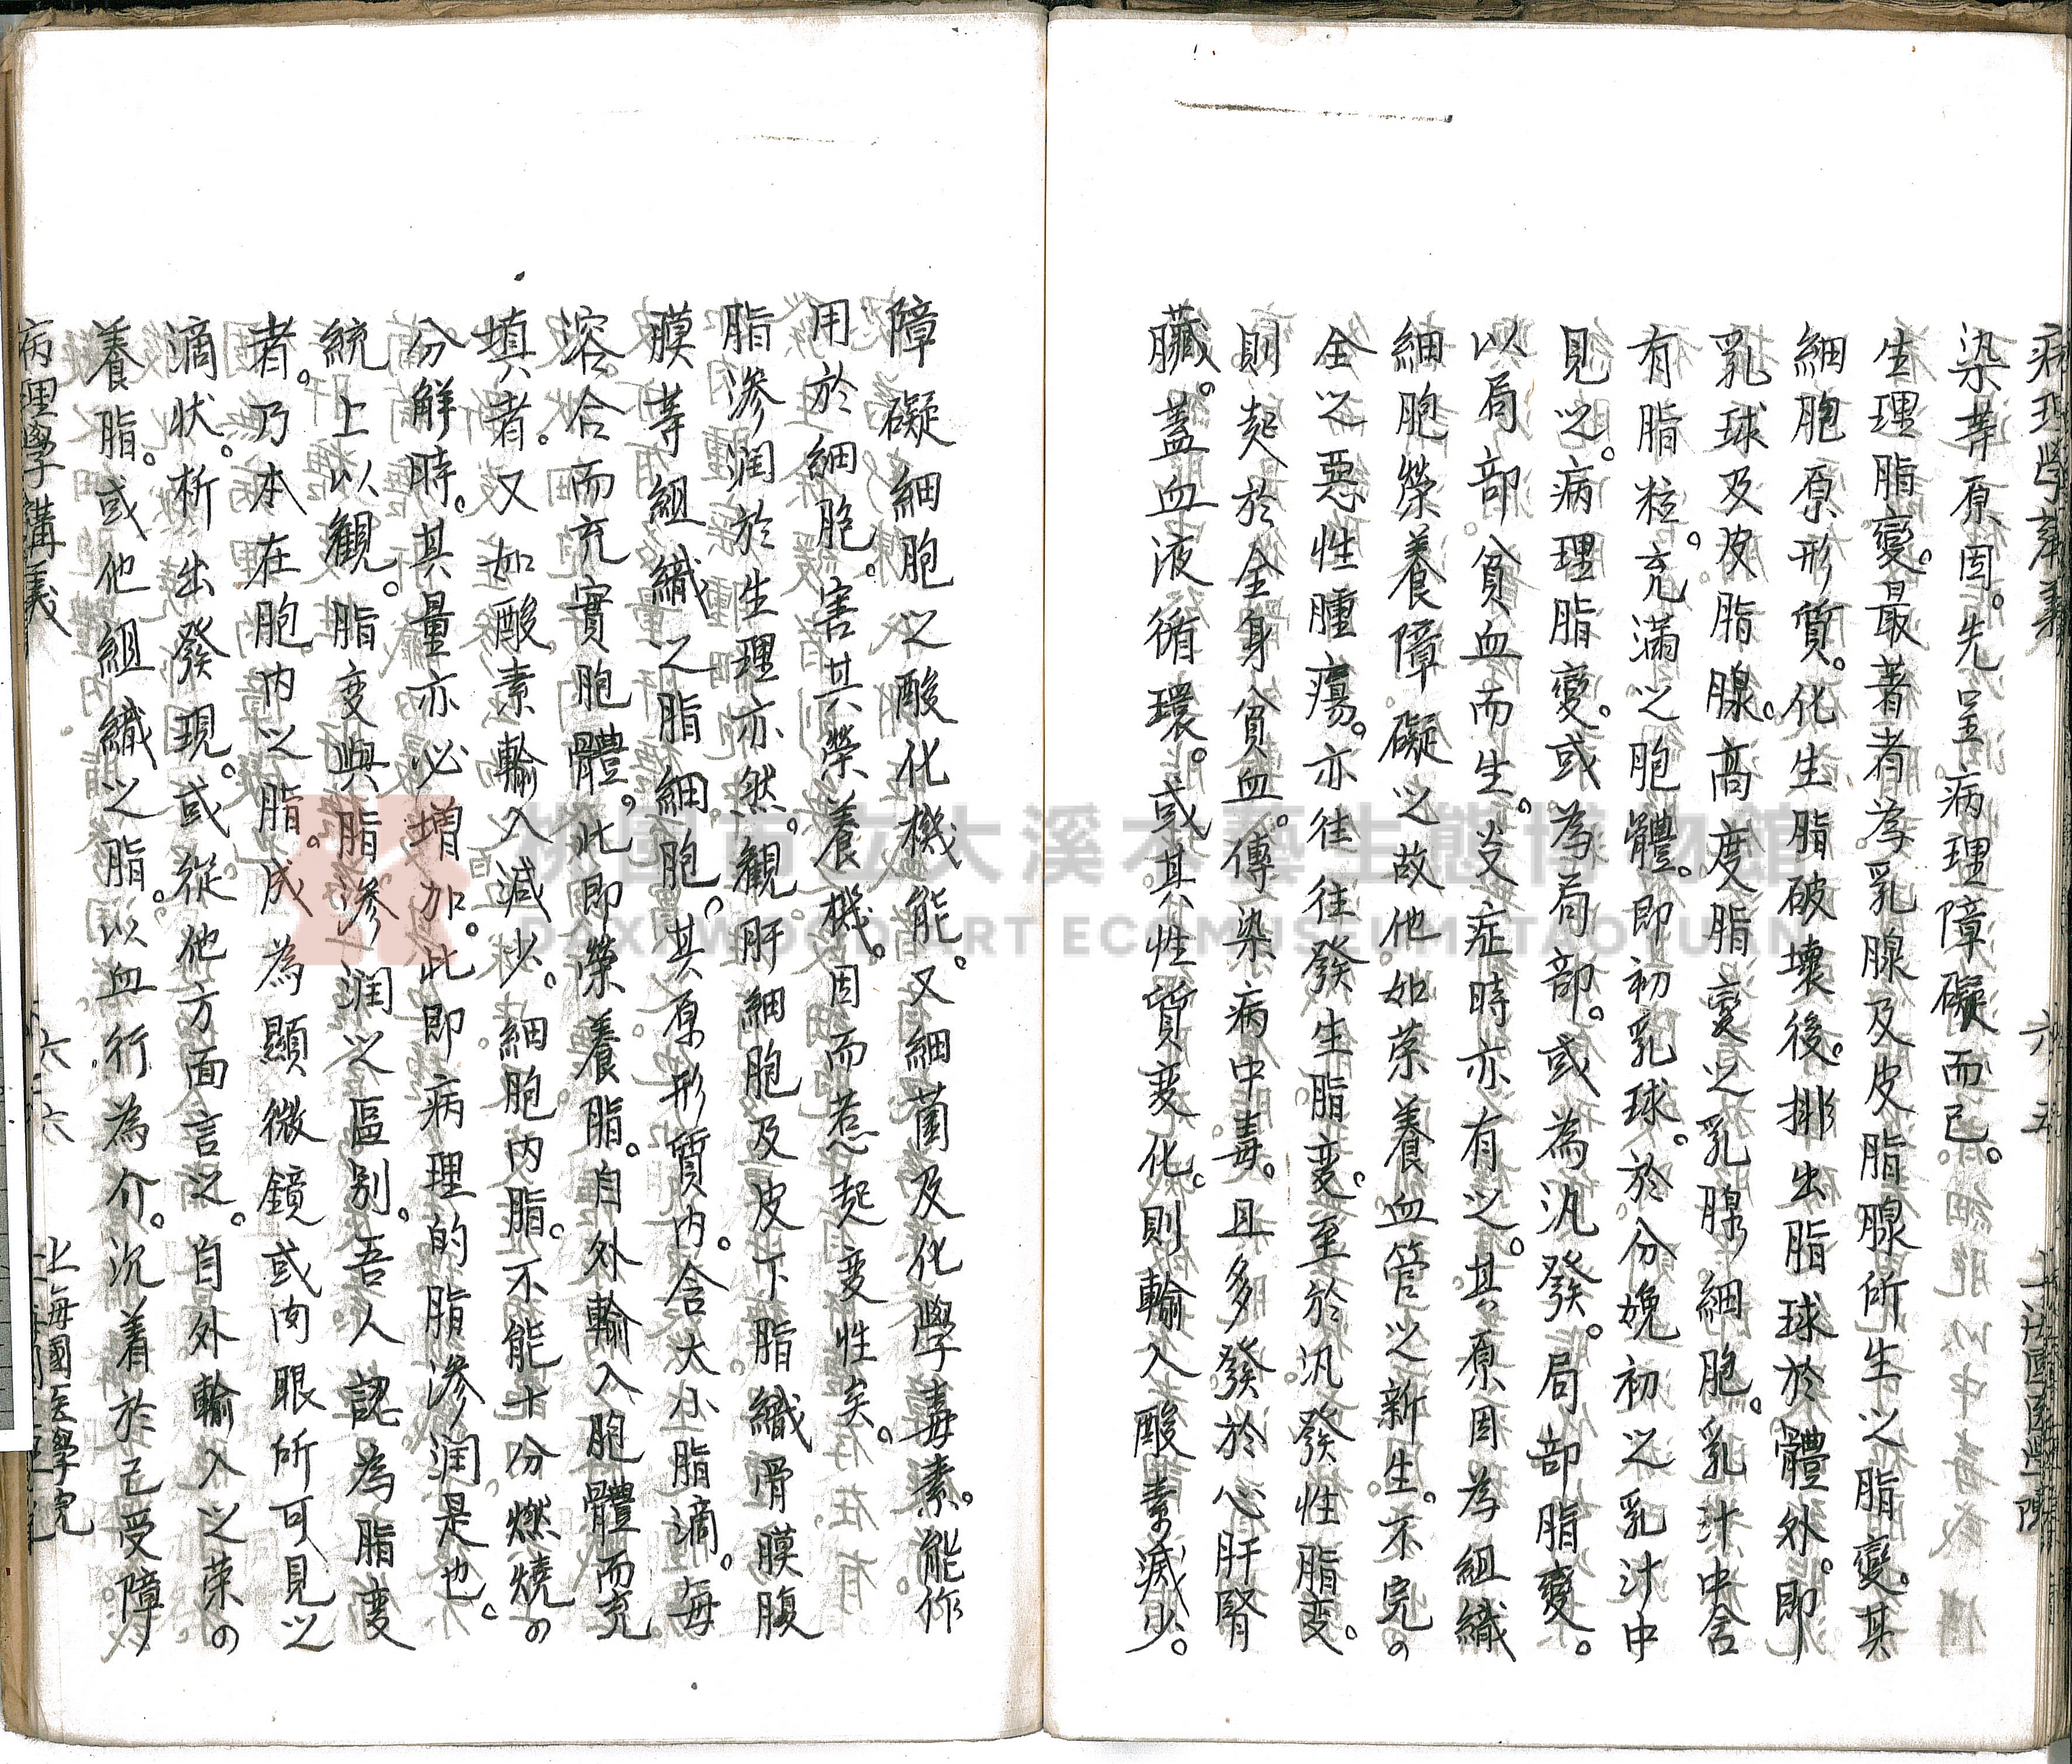 病理學講義 六五 上海國医學院
染等原因。先呈病理障礙而已。
生理脂變。最著者為乳腺及皮脂腺所生之脂變。其
細胞原形質。化生脂破壞後。排出脂球於體外。即
乳球及皮脂腺。高度脂變之乳腺細胞。乳汁中含
有脂粒。充滿之胞體。即初乳球。於分娩初之乳汁中
見之。病理脂變。或為局部。或為汎發。局部脂變。
以局部貧血而生。炎症時亦有之。其原因為組織
細胞榮養障礙之故。他如荣養血管之新生。不完の
全之惡性腫瘍。亦往往發生脂变。至於汎發性脂变。
則起於全身貧血。傳染病中毒。且多發於心肝腎
臟。蓋血液循環。或其性質变化。則輸入酸素减少。
障礙細胞之酸化機能。又細菌及化學毒素。能作
用於細胞。害其榮養機。因而惹起变性矣。
脂滲润於生理亦然。觀肝細胞及皮下脂織骨膜腹
膜等組織之脂細胞。其原形質内。含大小脂滴。每
溶合而充實胞體。此即榮養脂。自外輸入胞體而充
填者。又如酸素輸入减少。細胞内脂。不能十分燃燒の
分解時。其量亦必增加。此即病理的脂滲润是也。
統上以觀。脂变與脂滲润之區别。吾人認為脂变
者。乃本在胞内之脂。成為顯微鏡或肉眼所可見之
滴状。析出發現。或從他方面言之。自外輸入之荣の
養脂。或他組織之脂。以血行為介。沉着於已受障
病理學講義 六六 上海國医學院
桃園市立大溪木藝生態博物館
DAXI WOOD ART ECOMUSEUM, TAOYUAN